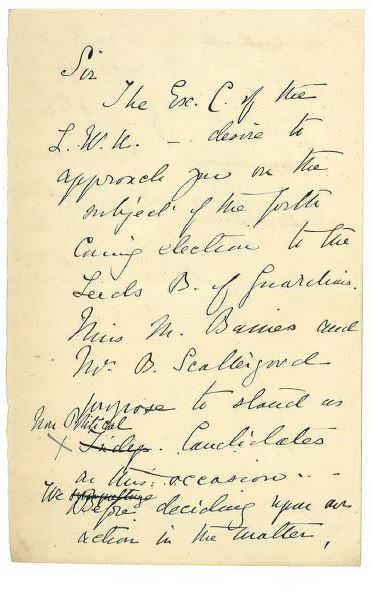 Sir
The Ex. C. of the
L.W.U. – desire to
approach you on the
subject of the forth
coming election to the
Leeds B. of Guardians.
Miss M. Baines and
Mr. B. Scattergood
propose to stand as
Non Political
x Indep. Candidates
on this occasion - -
We
Before deciding upon our
action in the matter,